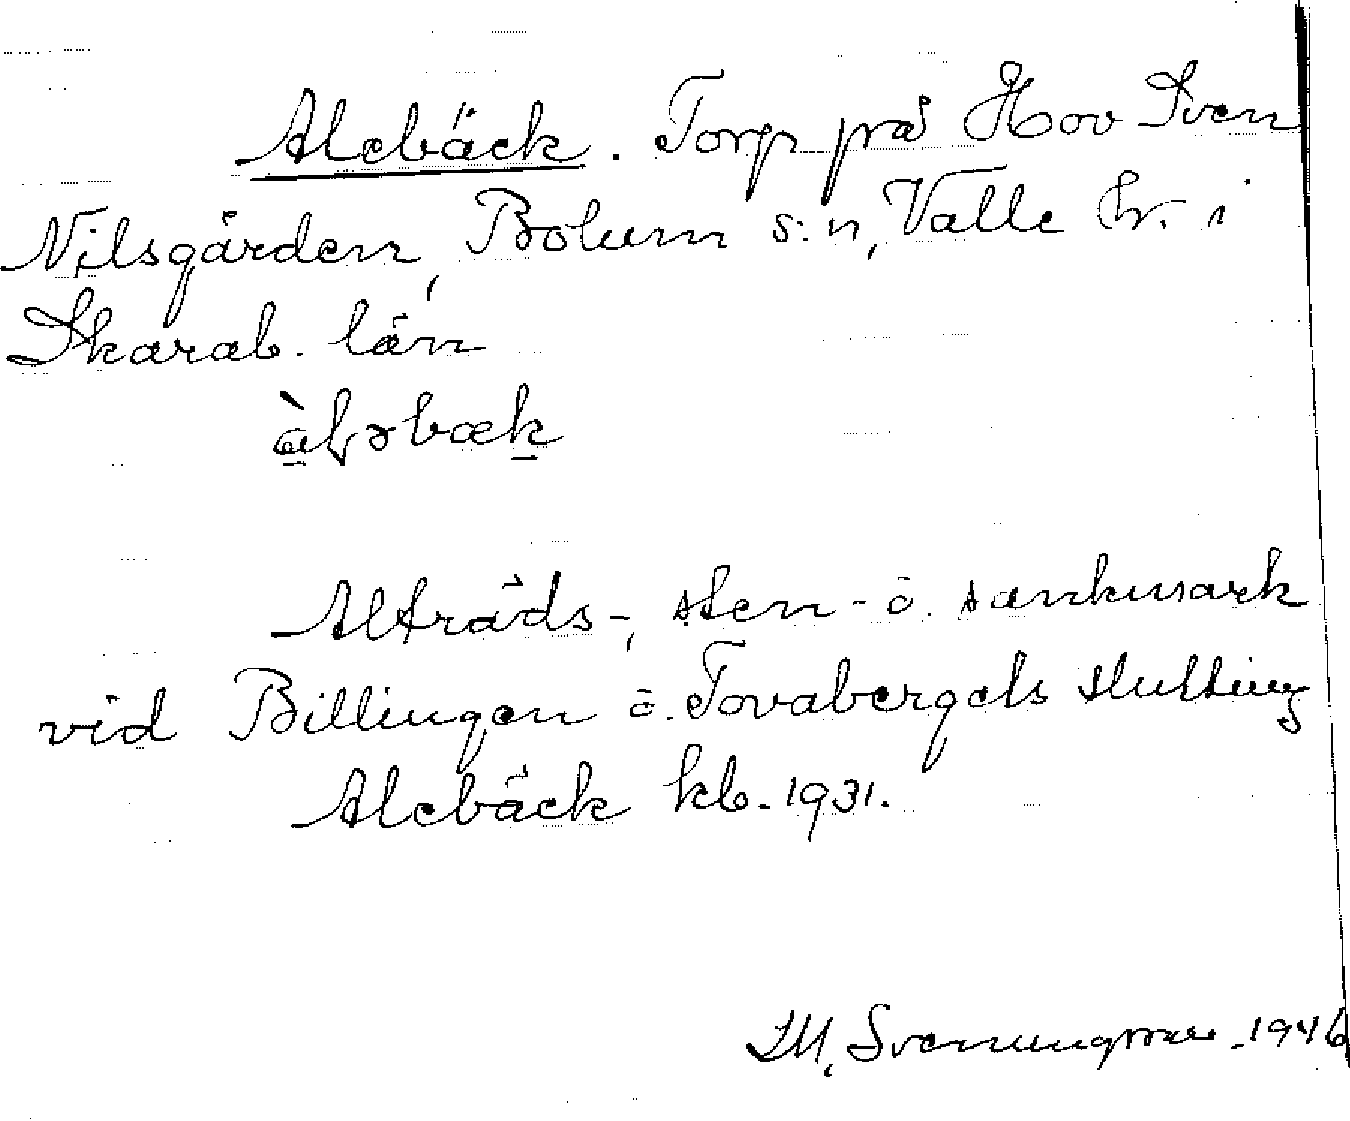 Alebäck. Torp på Hov Sven
Nilsgården, Bolum s:n, Valle hr. i
Skarab. län
àlɘbæk
Alträds-, sten- o. sankmark
vid Billingen o. Tovabergets sluttning
Alebäck kb. 1931.
S.M. Svenungsson. 1946